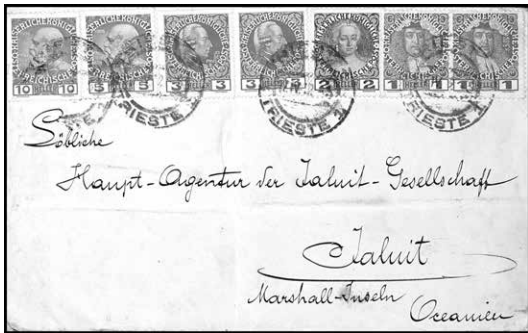 10 10 5 5 3 3 3 3 2 2 1 1 1 1
TRIESTE 1 TRIESTE 1 TRIESTE 1
Löbliche
Haupt-Agentur der Jaluit-Gesellschaft
Jaluit
Marshall-Inseln
Oceanien